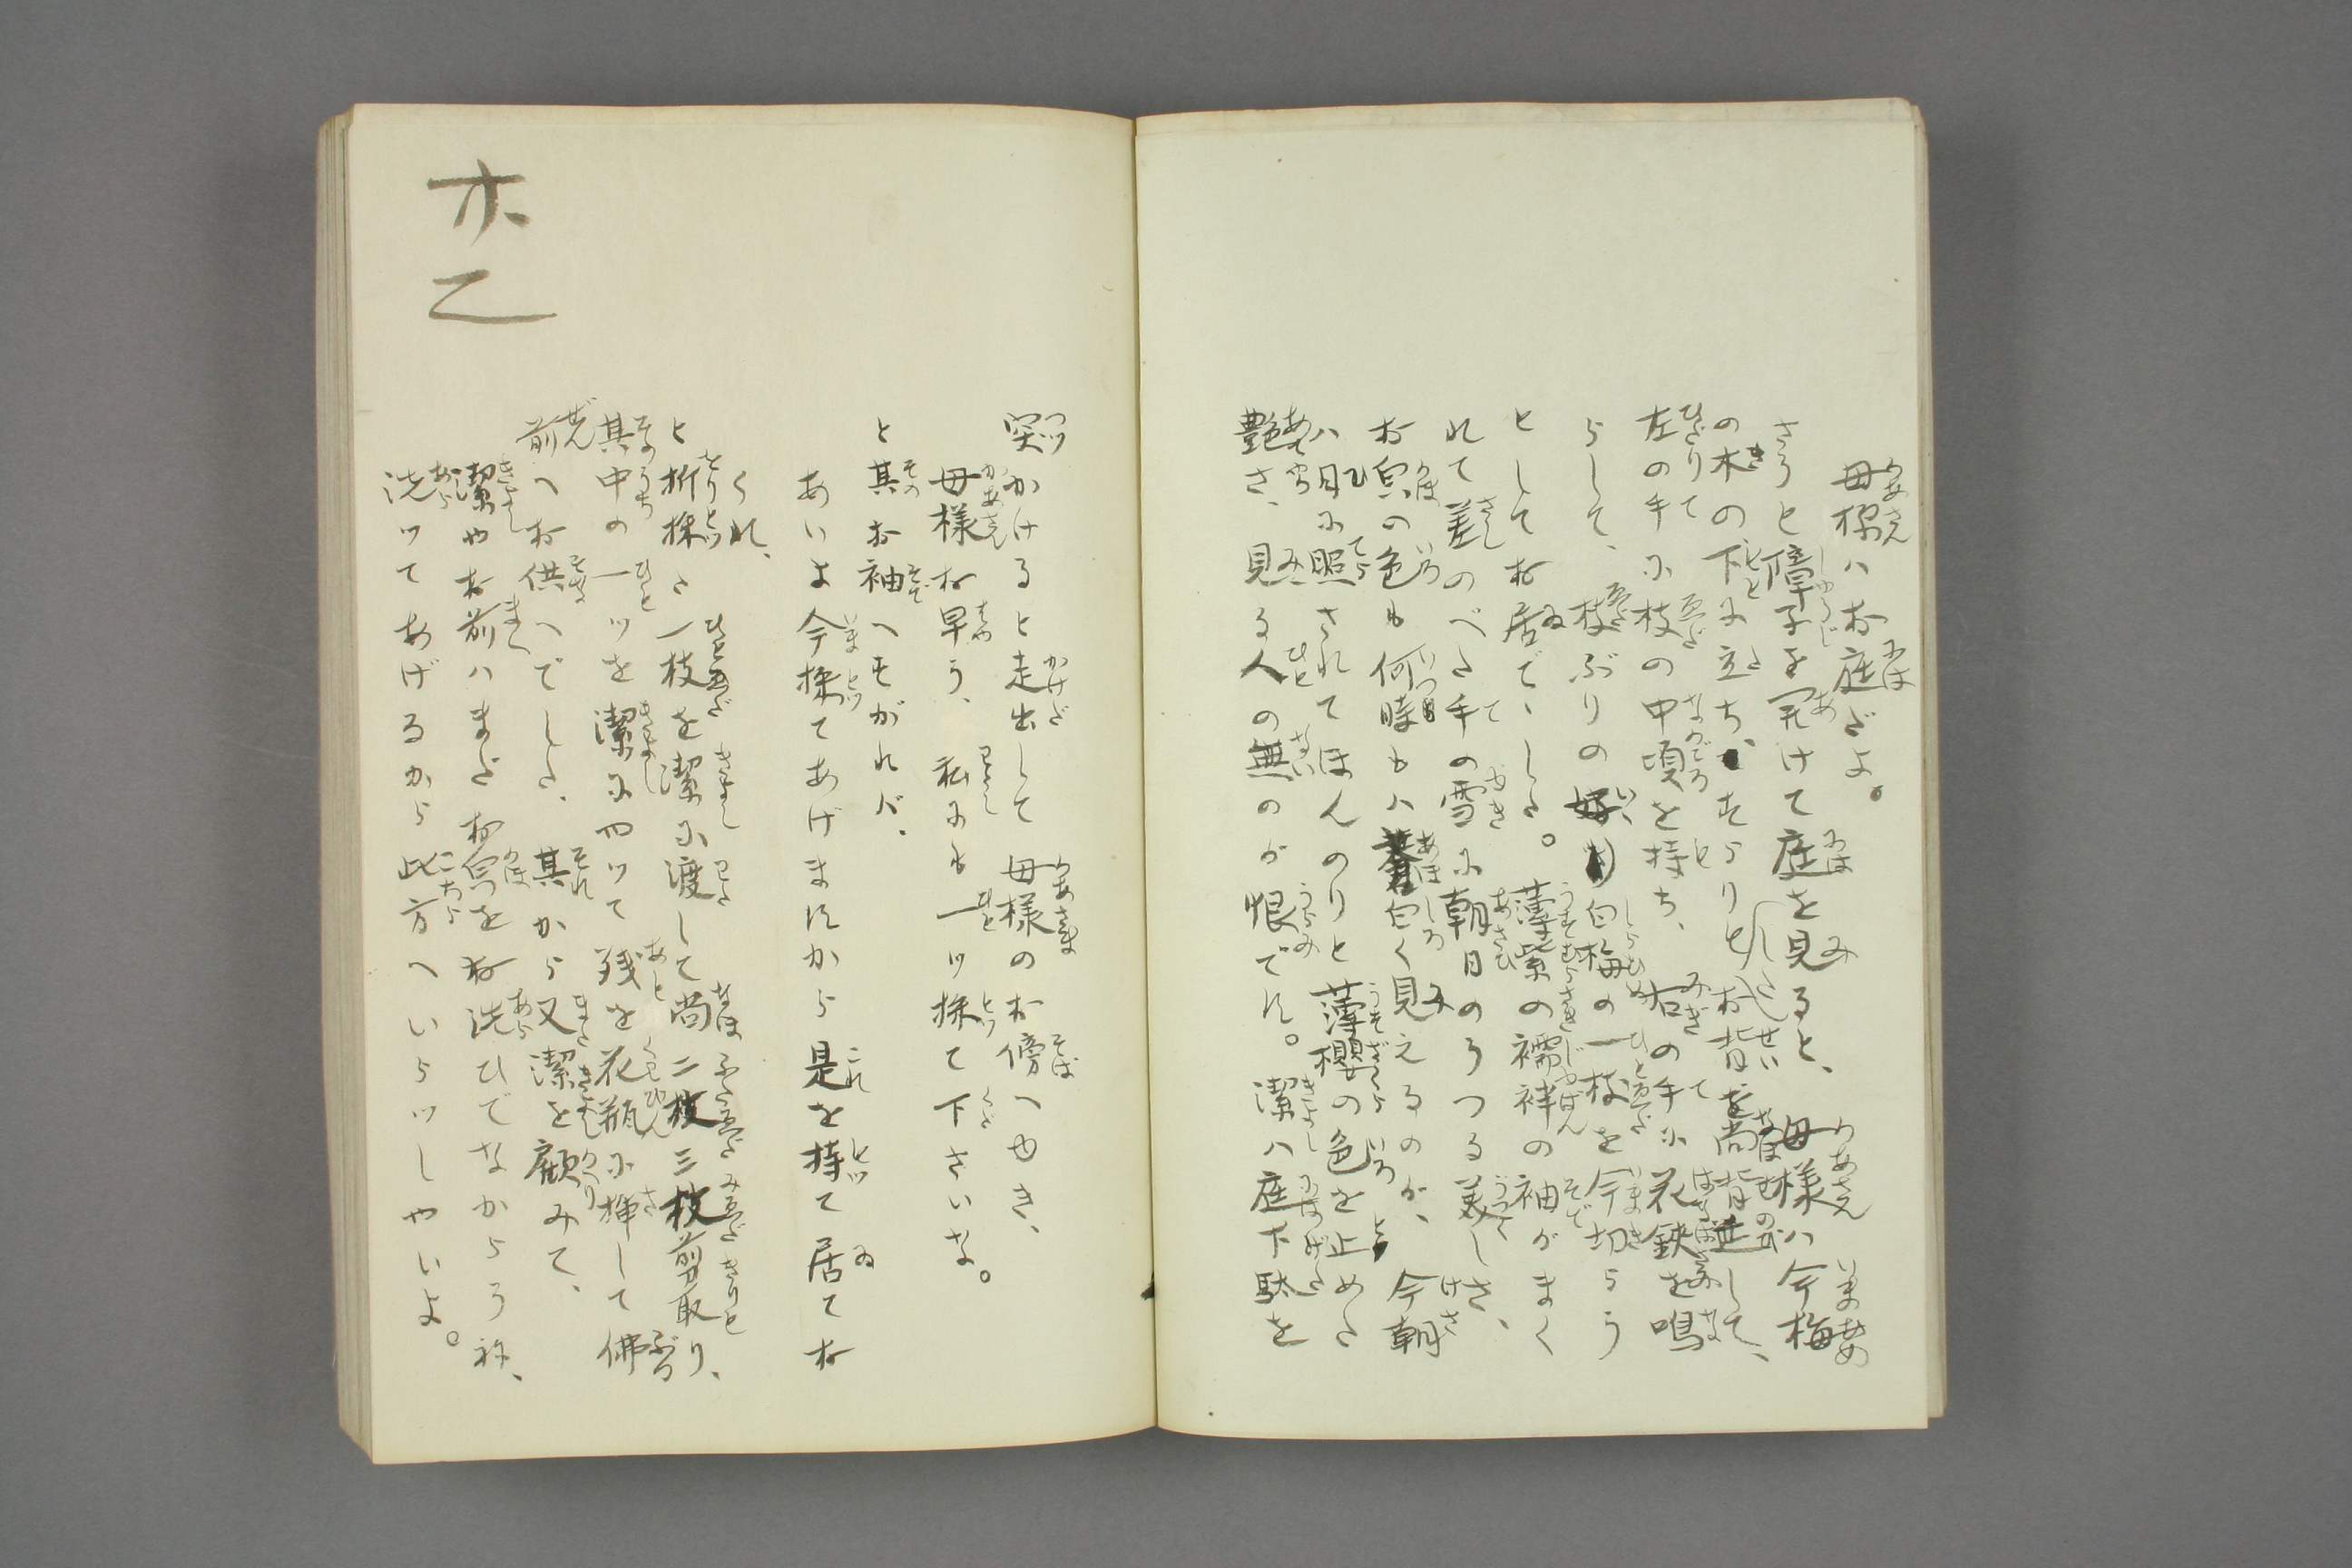 母様ハお庭だよ。
さらと障子を開けて庭を見ると、母様ハ今梅
の木の下に立ち、すらりとしたお背を尚背延して、
左の手に枝の中頃を持ち、右の手に花鋏を鳴
らして、枝ぶりの好い白梅の一枝を今切らう
としてお居で、した。薄紫の襦袢の袖がまく
れて差のべた手の雪に朝日のうつる美しさ、
お㒵の色も何時もハ蒼白く見えるのが、今朝
ハ日に照されてほんのりと薄櫻の色を止めた
艶さ、見る人の無のが恨です。潔ハ庭下駄を
突かけると走出して母様のお傍へゆき、
母様お早う、私にも一ツ採て下さいな。
と其お袖へすがれバ、
あいよ今採てあげますから是を持て居てお
くれ、
と折採た一枝を潔に渡して尚二枝三枝剪取り、
其中の一ツを潔に四ツて残を花瓶に挿して佛
前へお供へでした、其から又潔を顧みて、
潔やお前ハまだお㒵をお洗ひでなからう祢、
洗ッてあげるから此方へいらッしやいよ。
亦乙